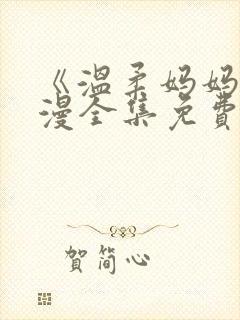 《温柔妈妈
漫全集免費
贺简心